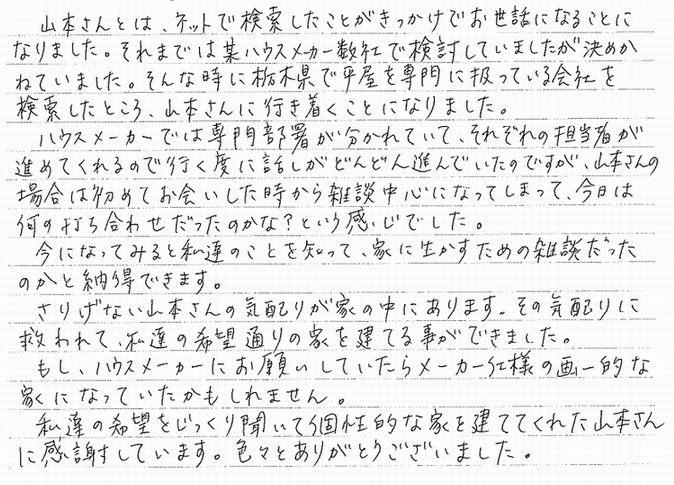 山本さんとは、ネットで検索したことがきっかけでお世話になることに
なりました。それまでは某ハウスメーカー数社で検討していましたが決めか
ねていました。そんな時に栃木県で平屋を専門に扱っている会社を
検索したところ、山本さんに行き着くことになりました。
ハウスメーカーでは専門部署が分かれていて、それぞれの担当者が
進めてくれるので行く度に話しがどんどん進んでいたのですが、山本さんの
場合は初めてお会いした時から雑談中心になってしまって、今日は
何の打ち合わせだったのかな?という感じでした。
今になってみると私達のことを知って、家に生かすための雑談だった
のかと納得できます。
さりげない山本さんの気配りが家の中にあります。その気配りに
救われて、私達の希望通りの家を建てる事ができました。
もし、ハウスメーカーにお願いしていたらメーカー仕様の画一的な
家になっていたかもしれません。
私達の希望をじっくり聞いて個性的な家を建ててくれた山本さん
に感謝しています。色々とありがとうございました。